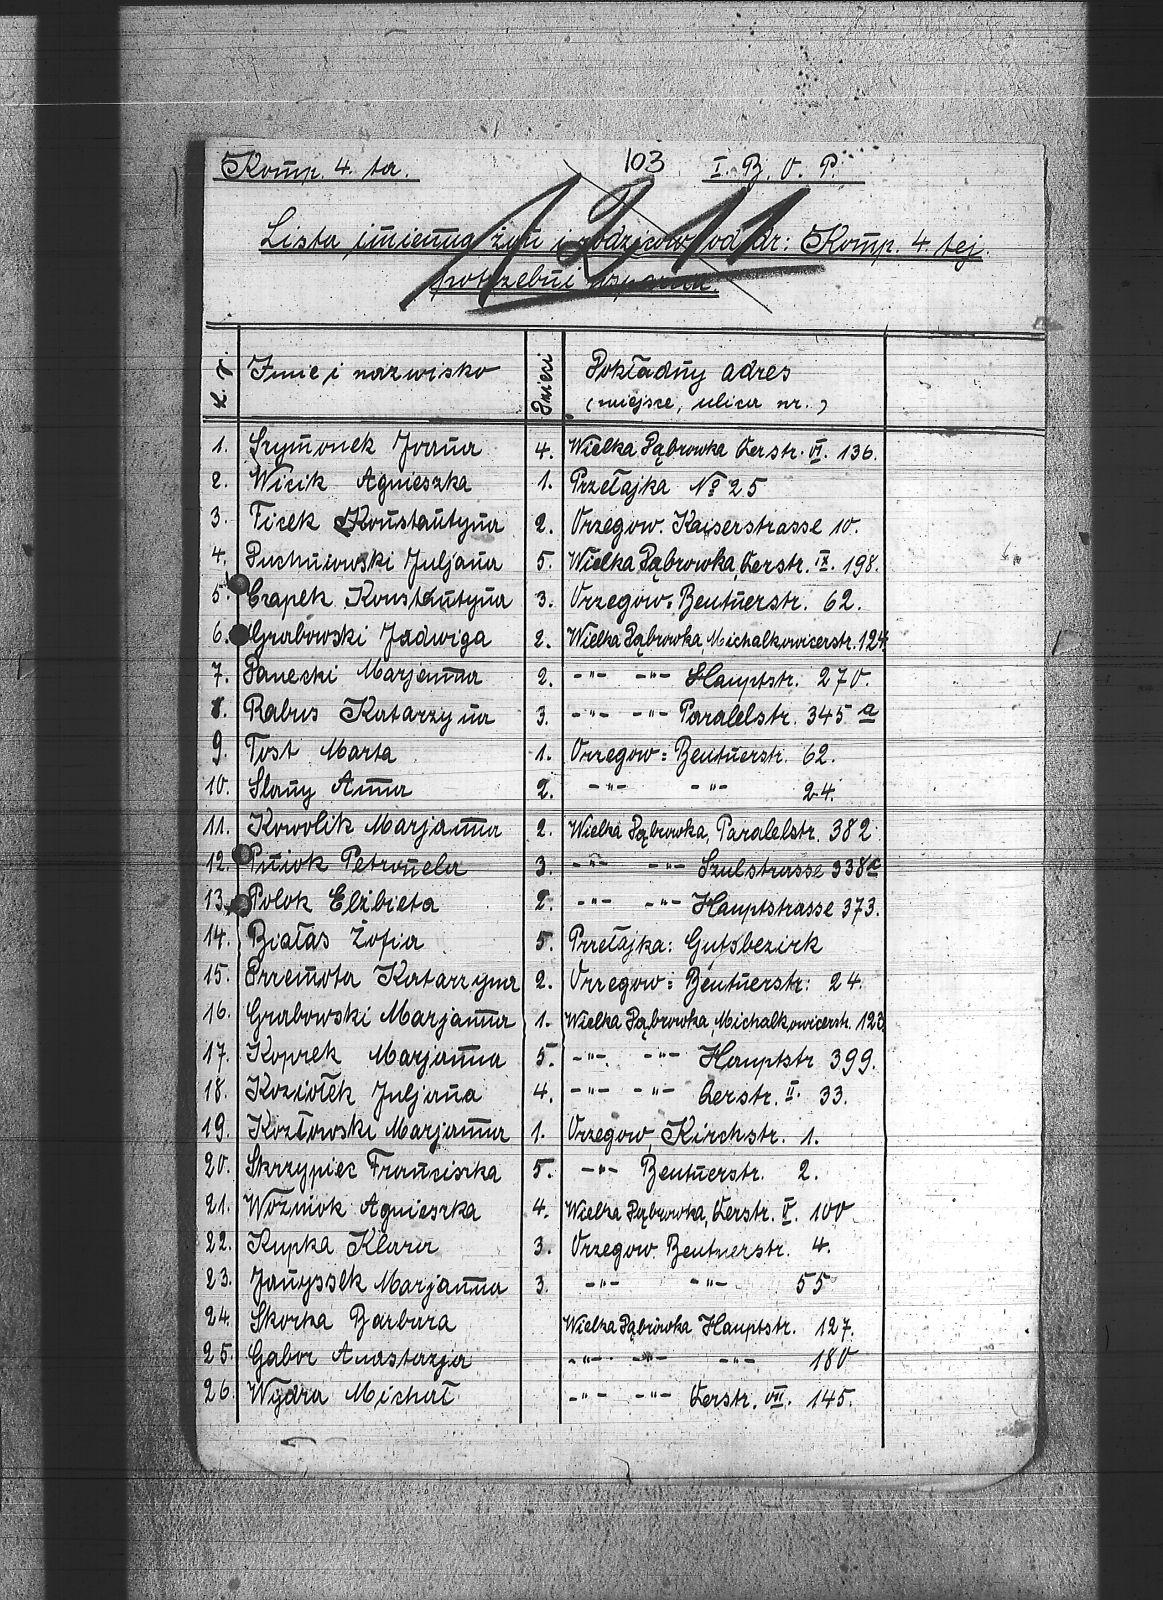 Komp. 4. ta. 103 I. B. O. P.
1211
Lista imienna żon i rodziców od dr: Komp. 4. tej.
potrzebni wsparcia.
L. r. Imie i nazwisko Dzieci Dokładny adres
(miejsce, ulica nr.)
1. Szymonek Joana 4. Wielka Dąbrowka Qerstr. VI. 136.
2. Wicik Agnieszka 1. Przełajka № 25
3. Ticek Konstantyna 2. Orzegow. Kaiserstrasse 10.
4. Puchniowski Juljana 5. Wielka Dąbrowka, Qerstr. IX. 198.
5. Czapek Konstantyna 3. Orzegow: Beutnerstr. 62.
6. Grabowski Jadwiga 2. Wielka Dąbrowka, Michalkowicerstr. 124
7. Panecki Marjanna 2. -"- -"- Hauptstr. 270.
8. Rabus Katarzyna 3. -"- -"- Paralelstr. 345 a
9. Tost Marta 1. Orzegow: Beutnerstr. 62.
10. Slany Anna 2. -"- -"- 24.
11. Kowolik Marjanna 2. Wielka Dąbrowka, Paralelstr. 382
12. Piniok Petronela 3. -"- -"- Szulstrasse 338c
13. Polok Elżbieta 2. -"- -"- Hauptstrasse 373.
14. Białas Zofia 5. Przełajka: Gutsbezirk
15. Przemota Katarzyna 2. Orzegow: Beutnerstr: 24.
16. Grabowski Marjanna 1. Wielka Dąbrowka, Michalkowicerstr. 123
17. Koprek Marjanna 5. -"- -"- Hauptstr 399.
18. Koziołek Juljana 4. -"- -"- Qerstr. II. 33.
19. Kozłowski Marjanna 1. Orzegow, Kirchstr. 1.
20. Skrzypiec Franciszka 5. -"- Beutnerstr. 2.
21. Wozniok Agnieszka 4. Wielka Dąbrowka, Qerstr. V. 100
22. Kupka Klara 3. Orzegow. Beutnerstr. 4.
23. Janyssek Marjanna 3. -"- -"- 55
24. Skorka Barbara Wielka Dąbrowka Hauptstr. 127.
25. Gabor Anastazja -"- -"- -"- 180
26. Wydra Michał -"- -"- Qerstr. VII. 145.